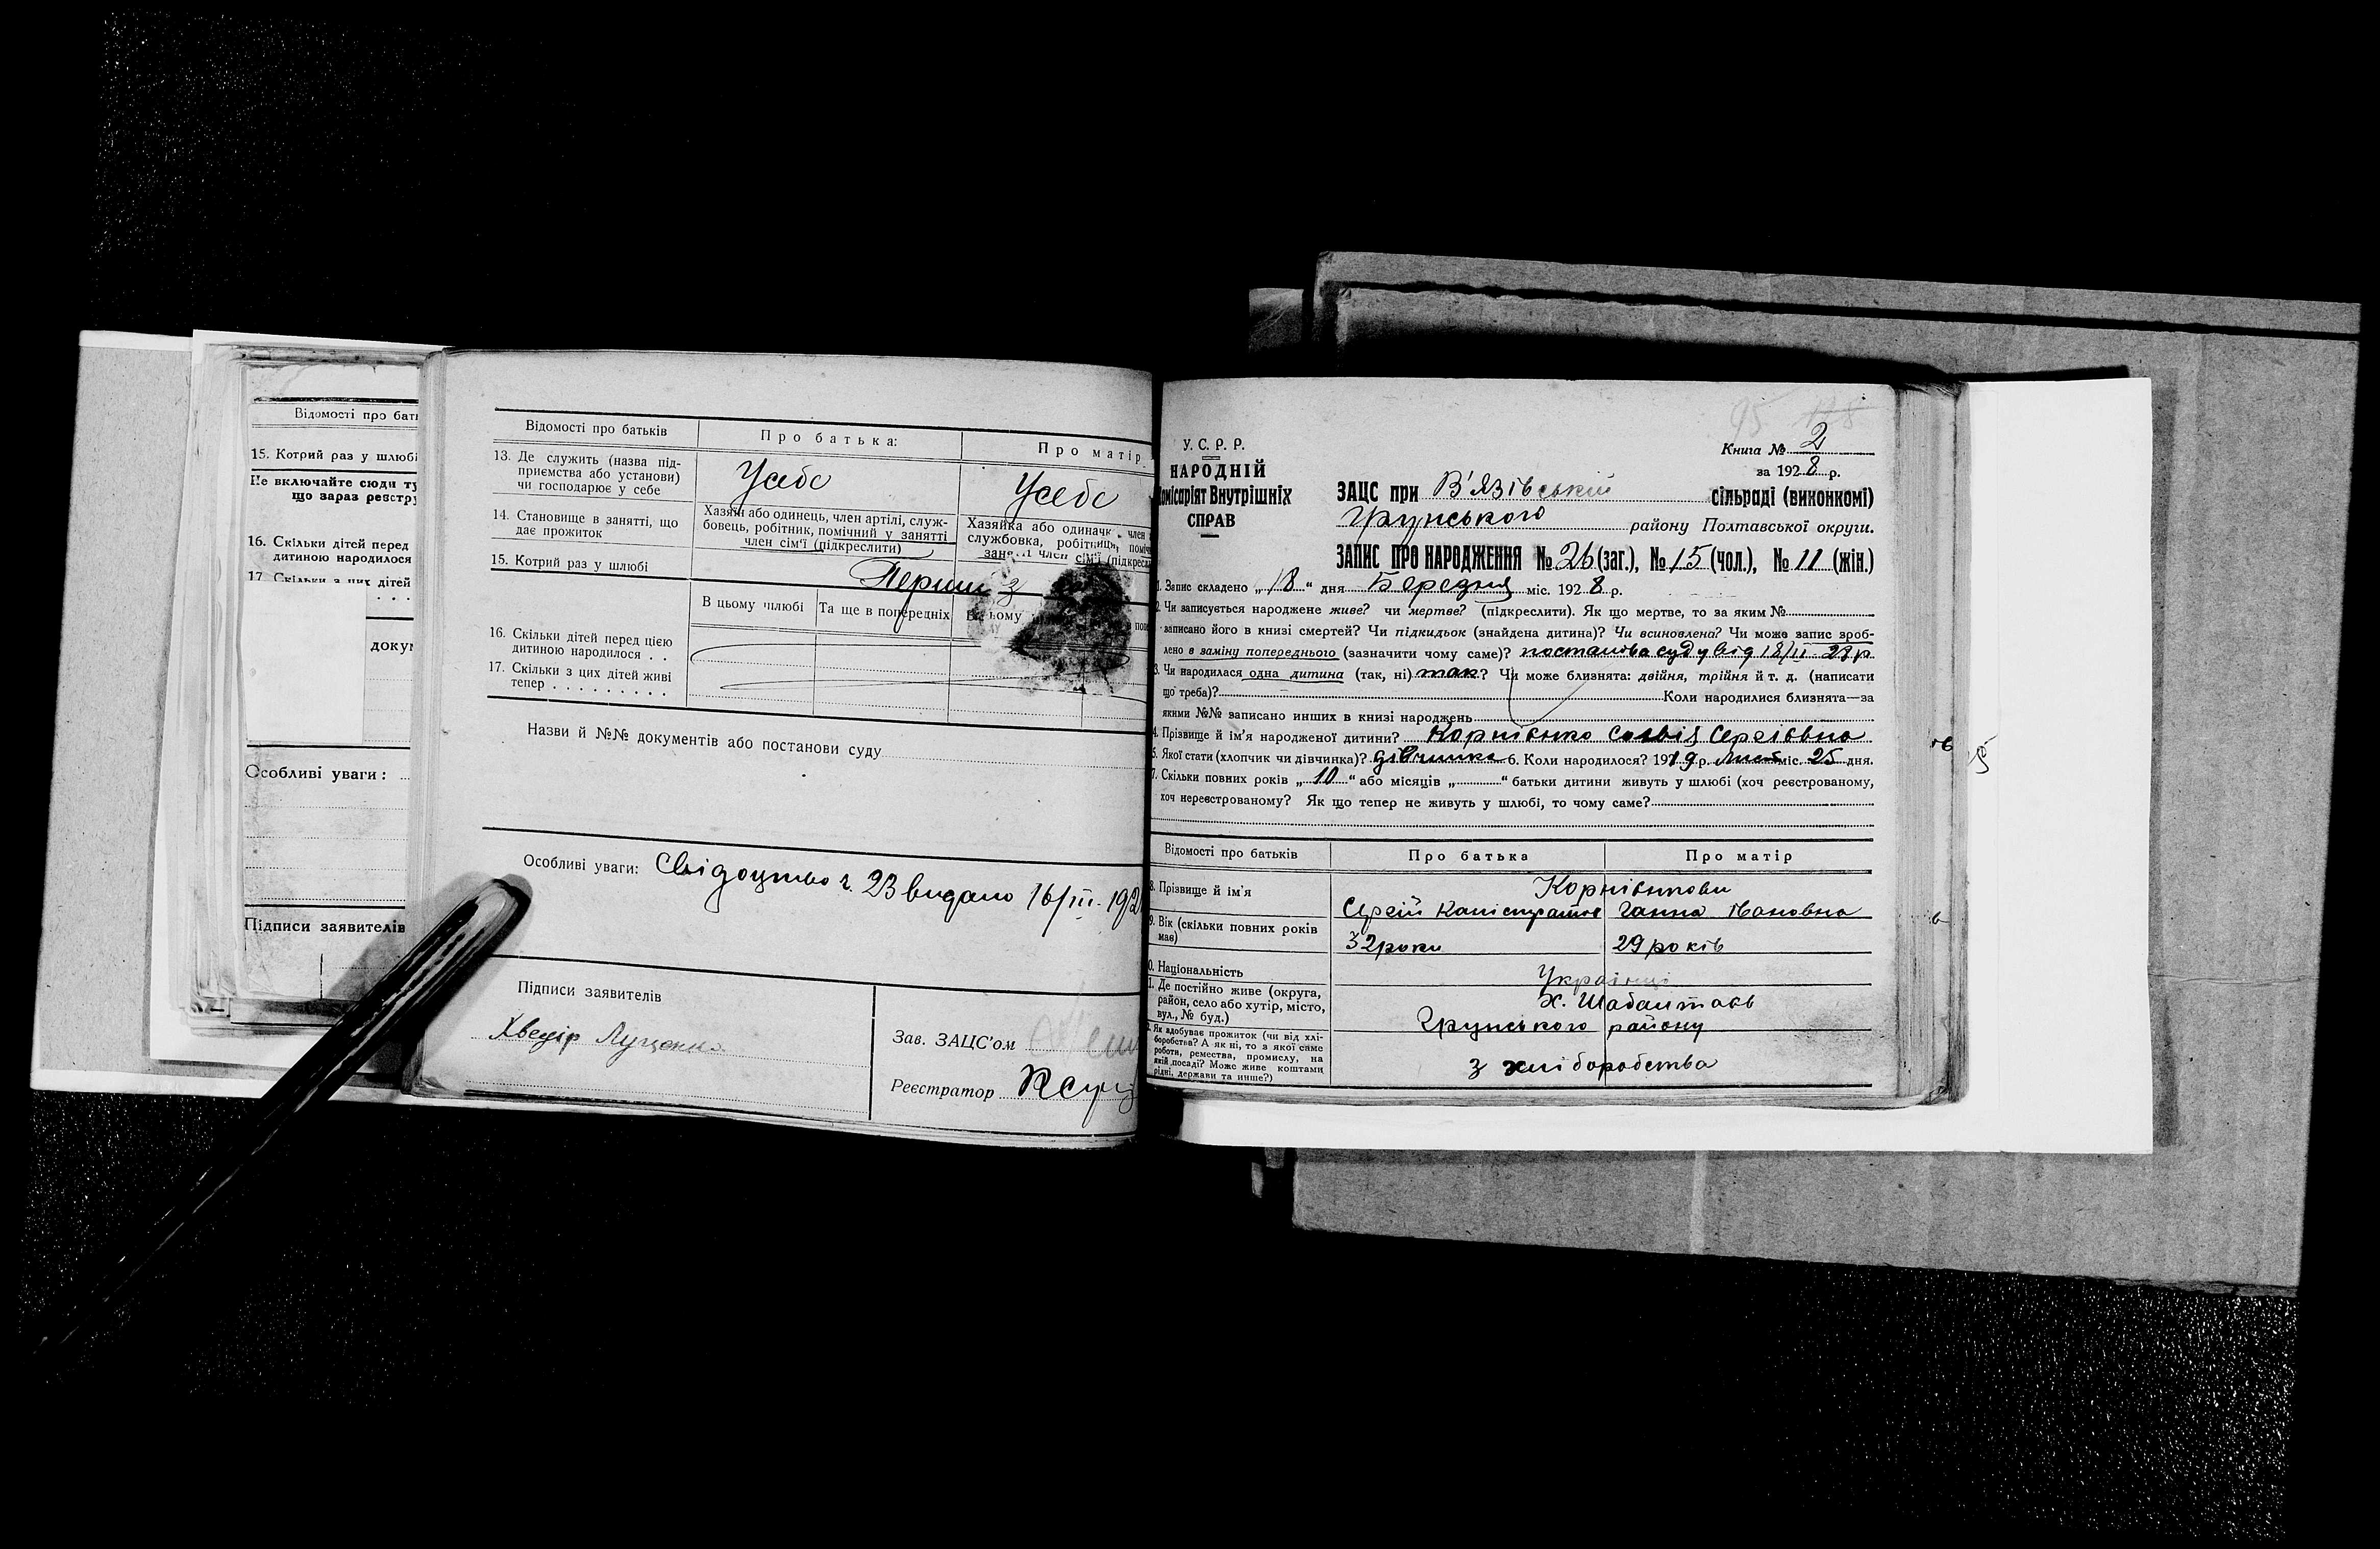 Відомості про бать
15. Котрий раз у шлюбі
Не включайте сюди ту
що зараз реєстру
16. Скільки дітей перед
дитиною народилося
17. Скільки з цих дітей
докум
Особливі уваги:
Підписи заявителів
Відомості про батьків
Про батька:
Про матір
13. Де служить (назва під-
приємства або установи)
чи господарює у себе
Усебе
Усебе
14. Становище в занятті, що
дає прожиток
Хазяїн або одинець, член артілі, служ-
бовець, робітник, помічний у занятті
член сім'ї (підкреслити)
Хазяйка або одиначк член
службовка, робітниця, поміч
член сім'ї (підкресл
15. Котрий раз у шлюбі
Перший
В цьому шлюбі
Та ще в попередніх
16. Скільки дітей перед цією
дитиною народилося . .
17. Скільки з цих дітей живі
тепер . . . . . . . . .
Назви й №№ документів або постанови суду
Особливі уваги: Свідоцтво ч. 23 видано 16/III-192
Підписи заявителів
Хведір Луценко
Зав. ЗАЦС'ом
Реєстратор
95 128
У. С. Р. Р.
НАРОДНІЙ
Комісаріят Внутрішніх
СПРАВ
Книга № 2
за 1928 р.
ЗАЦС при В'язівській сільраді (виконкомі)
Грунського району Полтавської округи.
ЗАПИС ПРО НАРОДЖЕННЯ № 26 (заг.), № 15 (чол.), № 11 (жін.)
1. Запис складено „18" дня Березня міс. 1928 р.
2. Чи записується народжене живе? чи мертве? (підкреслити). Як що мертве, то за яким №
записано його в книзі смертей? Чи підкидьок (знайдена дитина)? Чи всиновлена? Чи може запис зроб-
лено в заміну попереднього (зазначити чому саме)? постанова суду від 18/II 28 р
3. Чи народилася одна дитина (так, ні) так? Чи може близнята: двійня, трійня й т. д. (написати
що треба)? Коли народилися близнята—за
якими №№ записано инших в книзі народжень
4. Прізвище й ім'я народженої дитини? Корнієнко Сергіївна
5. Якої стати (хлопчик чи дівчинка)? дівчинка 6. Коли народилося? 1919 р. Лист міс. 25 дня.
7. Скільки повних років „10" або місяців „ " батьки дитини живуть у шлюбі (хоч реєстрованому,
хоч нереєстрованому? Як що тепер не живуть у шлюбі, то чому саме?
Відомості про батьків
Про батька
Про матір
8. Прізвище й ім'я
Корнієнкови
Сергій Каністратов
Ганна Івановна
9. Вік (скільки повних років
має)
32 роки
29 років
10. Національність
Українці
11. Де постійно живе (округа,
район, село або хутір, місто,
вул., № буд.)
х. Шабантаєв
Грунського району
12. Як здобуває прожиток (чи від хлі-
боробства? А як ні, то з якої саме
роботи, ремества, промислу, на
якій посаді? Може живе коштами
рідні, держави та инше?)
з хліборобства